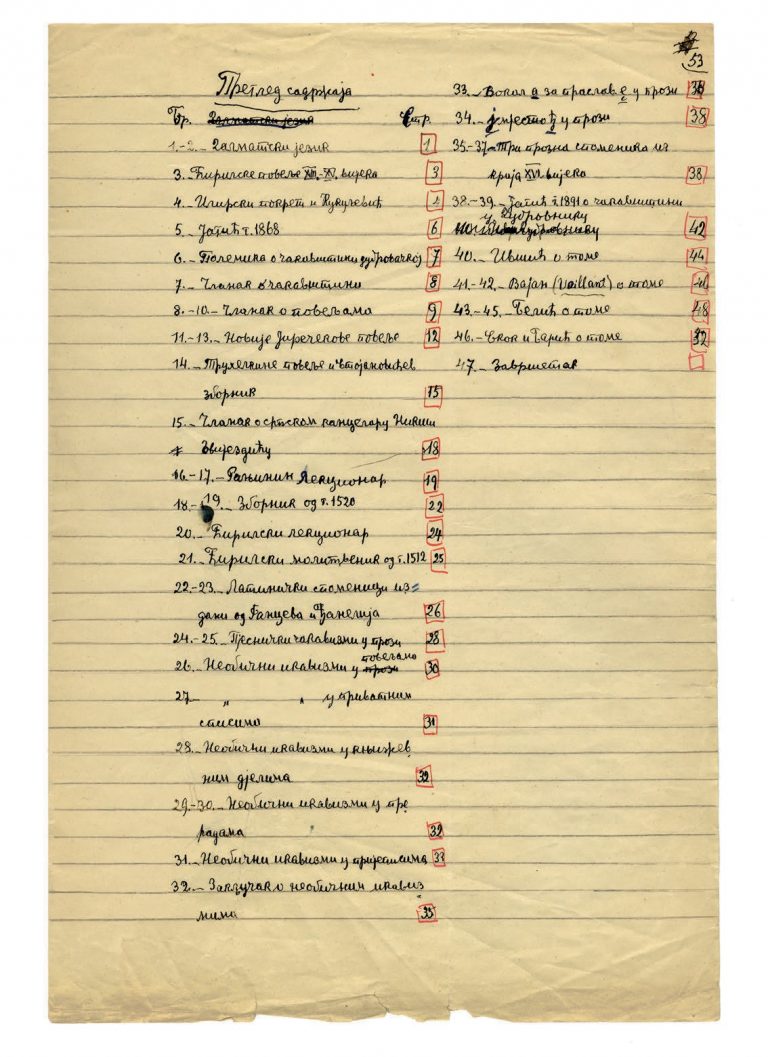 53
Преглед садржаја
Бр. Далматски језик Стр.
1.-2. Далматски језик 1
3. Ћирилске повеље XIII.-XV. вијека 3
4. Илирски покрет и Кукуљевић
5. Јагић г. 1868 6
6.- Полемика о чакавштини дубровачкој 7
7.- Чланак о чакавштини 8
8.-10.- Чланак о повељама 9
11.-13.- Новије Јиречекове повеље 12
14.- Трухелкине повеље и Стојановићев
зборник 15
15.- Чланак о српском канцелару Никши
Звијездићу 18
16.-17.- Рањинин Лекционар 19
18.-19.- Зборник од г. 1520 22
20.- Ћирилски лекционар 24
21.- Ћирилски молитвеник од г. 1512 25
22.-23.- Латинички споменици из=
дани од Ранцева и Ђанелија 26
24.-25.- Песнички чакавизми у прози 28
26.- Необични икавизми у повељама 30
27.- „ „ у приватним
списима 31
28.- Необични икавизми у књижев
ним дјелима 32
29.-30.- Необични икавизми у пре
радама 32
31.- Необични икавизми у пријеписима 33
32.- Закључак о необичним икавиз
мима 35
33.- Вокал а за праслав е у прози
34.- ј мјесто ђ у прози 38
35.-37.- Три прозна споменика из
краја XVI. вијека 38
38.-39.- Јагић г. 1891 о чакавштини
у Дубровнику 42
40.- Ившић о томе 44
41.-42.- Вајан (Vaillant) о томе
43.-45.- Белић о томе 48
46.- Скок и Барић о томе 52
47.- Завршетак